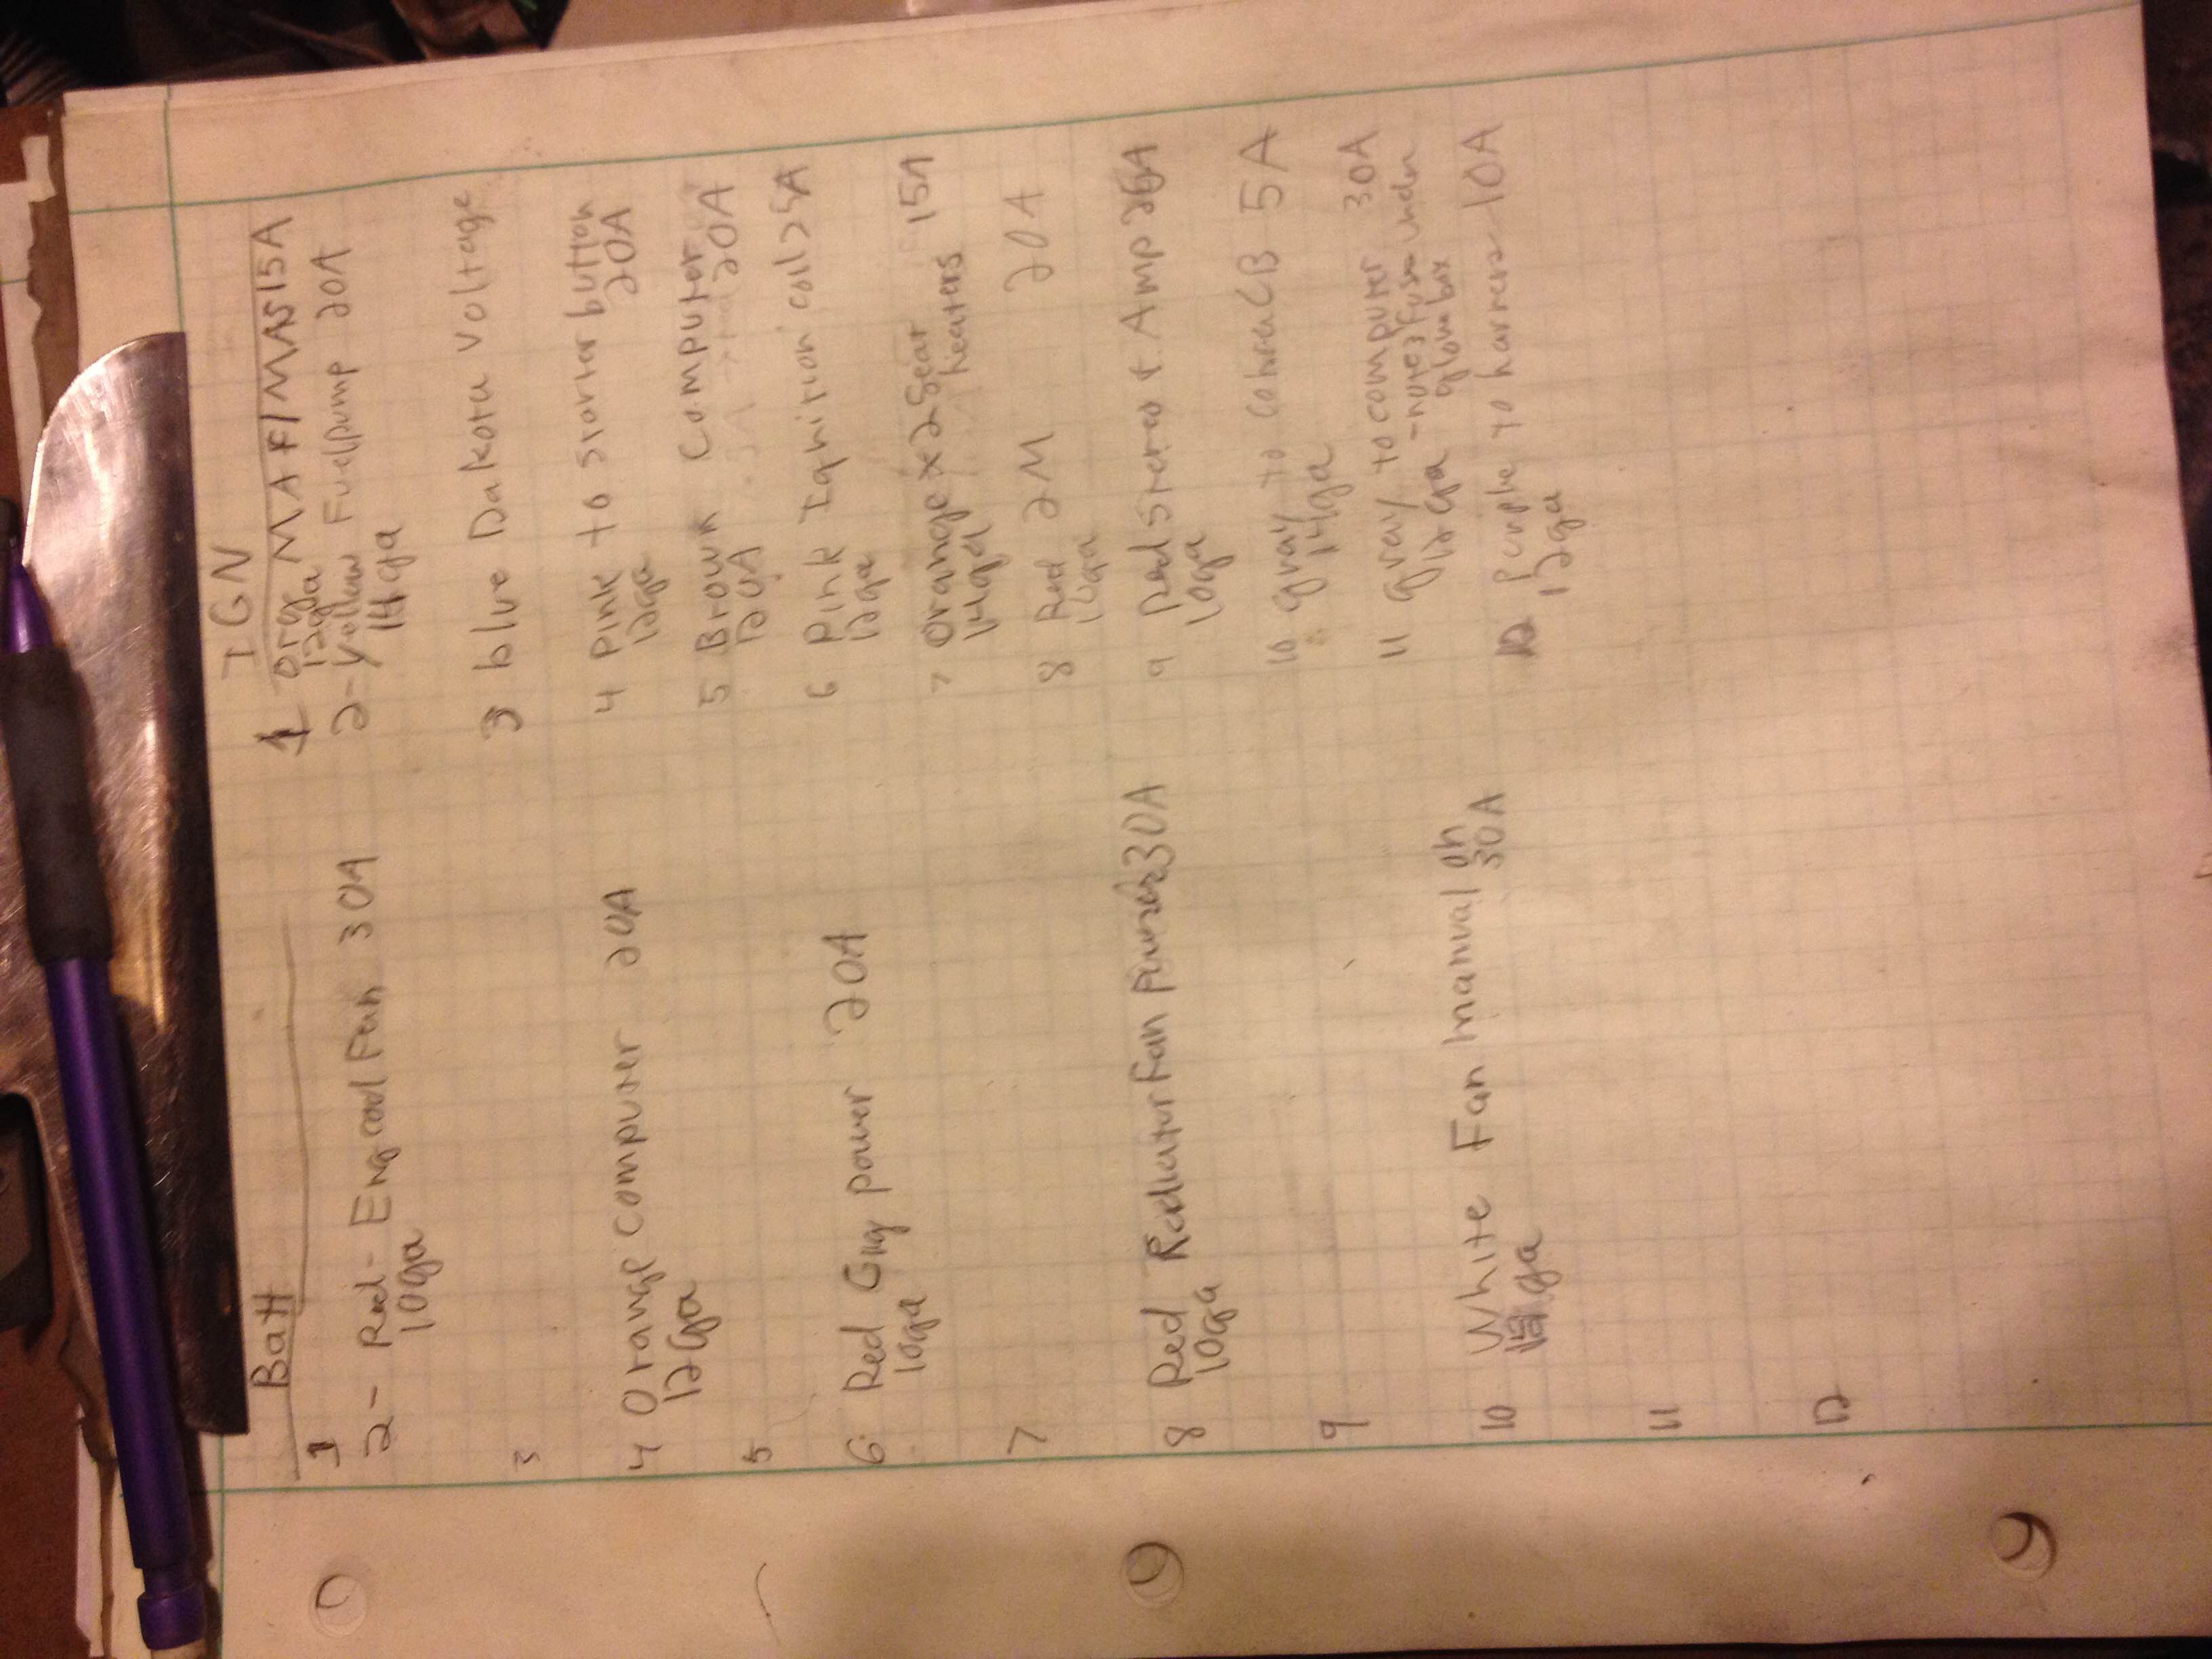 Batt
1
2- Red- Eng cool Fan 30A
10ga
3
4 Orange computer 20A
12ga
5
6 Red Gny power 20A
10ga
7
8 Red Radiator Fan 30A
10ga
9
10 White Fan manual on
ga 30A
11
12
IGN
1 org MAF/MAS 15A
12ga
2- yellow Fuelpump 20A
14ga
3 blue Dakota Voltage
4 Pink to starter button
12ga 20A
5 Brown Computer
12GA 20A
6 Pink Ignition coil 25A
12ga
7 Orange x2 Seat 15A
14ga heaters
8 Red 2M 20A
9 Red Stereo + Amp
10ga
10 gray to cobra CB 5A
14ga
11 gray to computer 30A
12ga - notes fuse under
glove box
12 Purple to harness 10A
12ga